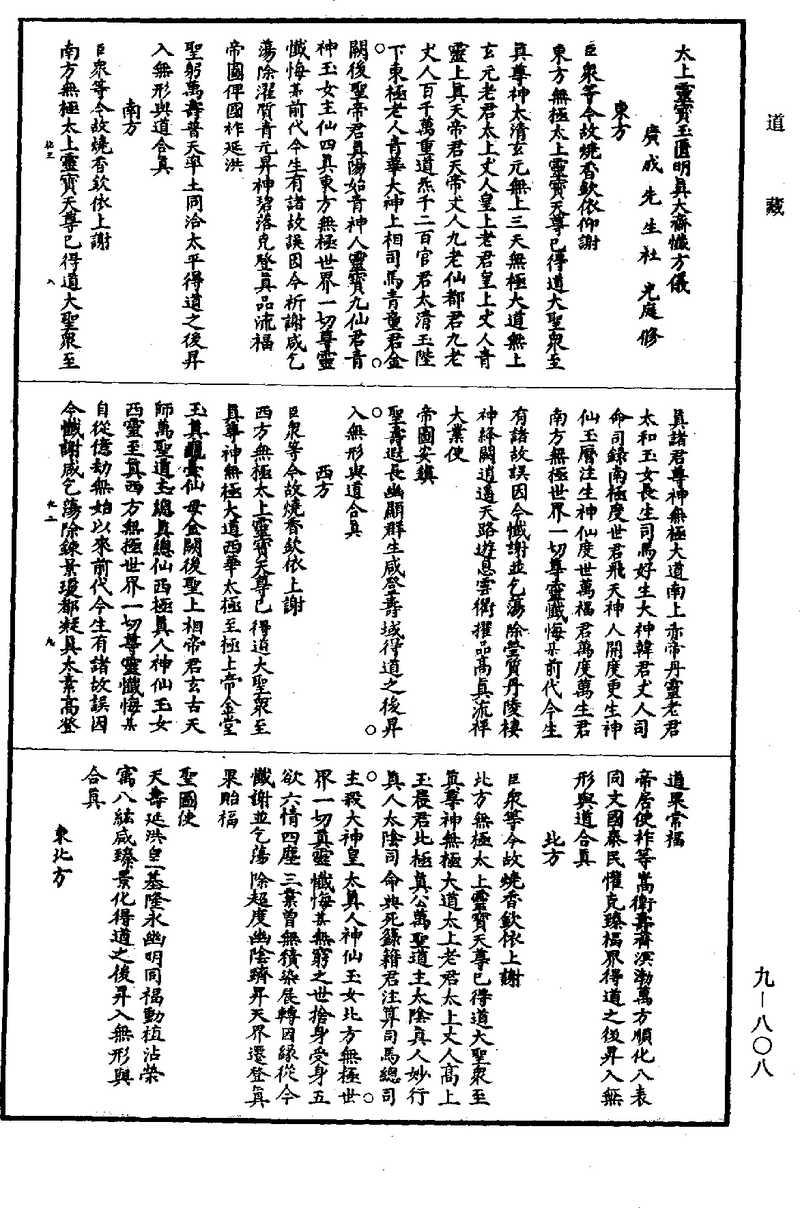 道藏
太上靈寶玉匱明真大齋懺方儀
廣成先生杜光庭修
東方
臣眾等今故燒香歸依仰謝
東方無極太上靈寶天尊已得道大聖眾至
真尊神太清玄元無上三天無極大道無上
玄元老君太上丈人皇上老君皇上丈人青
靈上真天帝君天帝丈人九老仙都君九老
丈人百千萬重道炁千二百官君太清玉陛
下東極老人青華大神上相司馬青童君金
闕後聖帝君真陽始青神人靈寶九仙君青
神玉女主仙四真東方無極世界一切尊靈
懺悔某前代今生有諸故誤因今祈謝咸乞
蕩除濯質青元昇神碧落克登真品流福
帝國俾國祚延洪
聖躬萬壽普天率土同洽太平得道之後昇
入無形與道合真
南方
臣眾等今故燒香歸依上謝
南方無極太上靈寶天尊已得道大聖眾至
真諸君尊神無極大道南上赤帝丹靈老君
太和玉女長生司馬好生大神韓君丈人司
命司錄南極度世君飛天神人開度更生神
仙玉曆注生神仙度世萬福君萬度萬生君
南方無極世界一切尊靈懺悔某前代今生
有諸故誤因今懺謝並乞蕩除瑩質丹陵棲
神絳闕逍遙天路遊息雲衢擢品高真流祥
大業使
帝圖安鎮
聖壽遐長幽顯群生咸登壽域得道之後昇
入無形與道合真
西方
臣眾等今故燒香歸依上謝
西方無極太上靈寶天尊已得道大聖眾至
真尊神無極大道西華太極至極上帝金堂
玉真龜臺仙母金闕後聖上相帝君玄古天
師萬聖道主總真總仙西極真人神仙玉女
西靈至真西方無極世界一切尊靈懺悔某
自從億劫無始以來前代今生有諸故誤因
今懺謝咸乞蕩除鍊景瓊都凝真太素高登
道果常福
帝居使祚等嵩衡壽齊溟渤萬方順化八表
同文國泰民懽克臻福界得道之後昇入無
形與道合真
北方
臣眾等今故燒香歸依上謝
北方無極太上靈寶天尊已得道大聖眾至
真尊神無極大道太上老君太上丈人高上
玉晨君北極真公萬聖道主太陰真人妙行
真人太陰司命典死籙籍君注算司馬總司
主殺大神皇太真人神仙玉女北方無極世
界一切真靈懺悔某無窮之世捨身受身五
欲六情四塵三業曾無積染展轉因緣從今
懺謝並乞蕩除超度幽陰躋昇天界還登真
果貽福
聖國使
天壽延洪皇基隆永幽明同福動植沾榮
寓八紘咸臻景化得道之後昇入無形與
合真
東北方
九—八〇八